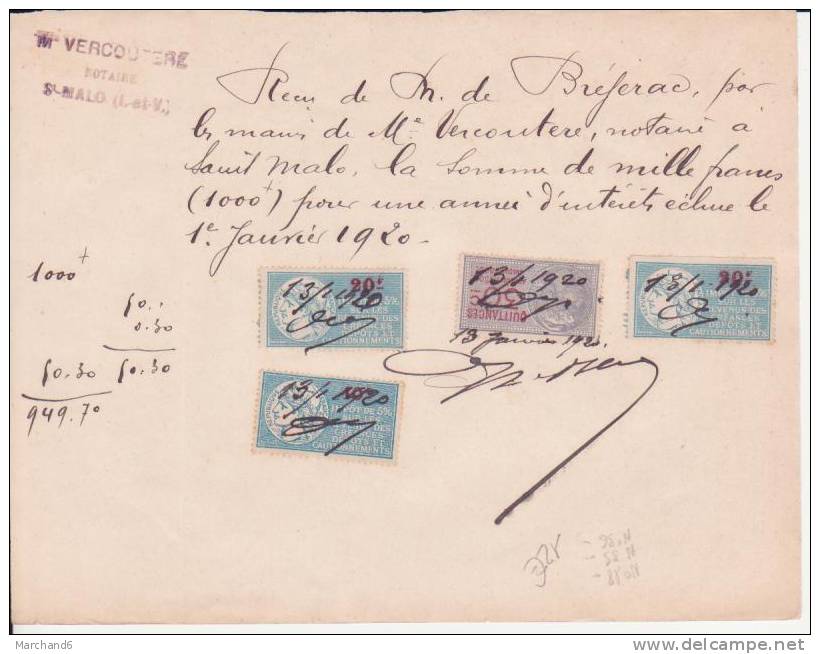 Me VERCOUTERE
NOTAIRE
St MALO (I.-et-V.)
Reçu de M. de Bréjerac, par
les mains de Me Vercoutere, notaire à
Saint Malo, la somme de mille francs
(1000+) pour une année d'intérêts échue le
1er Janvier 1920.
1000+
50..
0.30
50.30 50.30
949.70
20F
13/1 1920
IMPÔT DE 5%
SUR LES
REVENUS DES
CRÉANCES
DÉPÔTS ET
CAUTIONNEMENTS
13/1 1920
QUITTANCES
20F
13/1. 1920
IMPÔT DE 5%
SUR LES
REVENUS DES
CRÉANCES
DÉPÔTS ET
CAUTIONNEMENTS
13 janvier 1920.
13/1 1920
IMPÔT DE 5%
SUR LES
CRÉANCES
DÉPÔTS ET
CAUTIONNEMENTS
Marchand6
www.delcampe.net